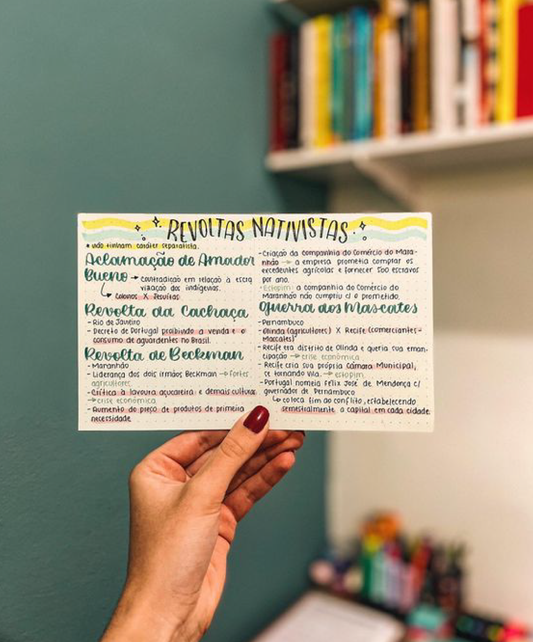 REVOLTAS NATIVISTAS
• não tinham caráter separatista.
Aclamação de Amador
Bueno → contradição em relação à escra
vização dos indígenas.
↳ Colonos X Jesuítas
Revolta da Cachaça
- Rio de Janeiro
- Decreto de Portugal proibindo a venda e o
consumo de aguardentes no Brasil
Revolta de Beckman
- Maranhão
- Liderança dos dois irmãos Beckman → fortes
agricultores
- Crítica à lavoura açucareira e demais cultura
→ crise econômica
- Aumento do preço de produtos de primeira
necessidade
- Criação da Companhia do Comércio do Mara-
nhão → a empresa prometia comprar os
excedentes agrícolas e fornecer 500 escravos
por ano.
Estopim: a companhia do Comércio do
Maranhão não cumpriu c/ o prometido.
Guerra dos Mascates
- Pernambuco
- Olinda (agricultores) X Recife (comerciantes-
Mascates)
- Recife era distrito de Olinda e queria sua eman-
cipação → crise econômica
- Recife cria sua própria Câmara Municipal,
se tornando vila. → estopim
- Portugal nomeia Félix José de Mendonça c/
governador de Pernambuco
↳ coloca fim ao conflito, estabelecendo
semestralmente a capital em cada cidade